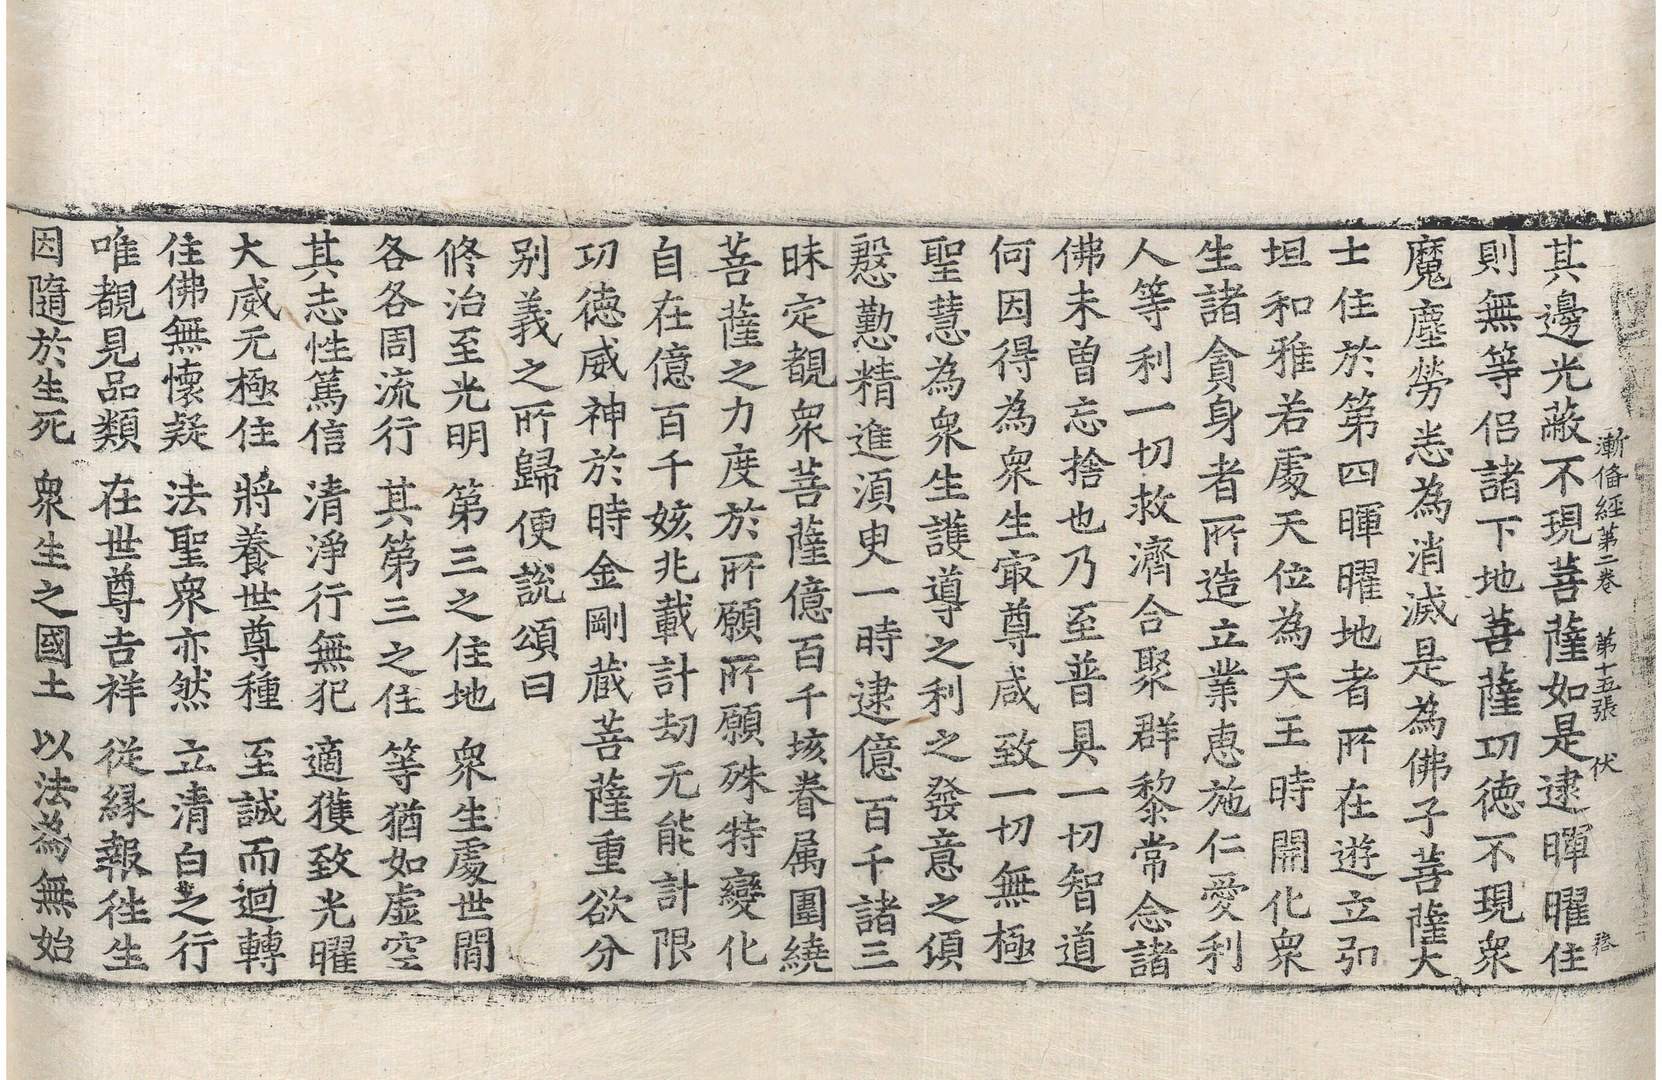 漸俻經第二卷 第十五張 伏
其邊光蔽不現菩薩如是逮暉曜住
則無等侶諸下地菩薩功徳不現衆
魔塵勞恙為消滅是為佛子菩薩大
士住於第四暉曜地者所在遊立弘
坦和雅若處天位為天王時開化衆
生諸貪身者所造立業惠施仁愛利
人等利一切救濟合聚群黎常念諸
佛未曽忘捨也乃至普具一切智道
何因得為衆生㝡尊咸致一切無極
聖慧為衆生護導之利之發意之頃
慇懃精進湏臾一時逮億百千諸三
昧定覩衆菩薩億百千垓眷属圍繞
菩薩之力度於所願所願殊特變化
自在億百千姟兆載計劫无能計限
功徳威神於時金剛蔵菩薩重欲分
别義之所歸便說頌曰
修治至光明 第三之住地 衆生處世間
各各周流行 其第三之住 等猶如虚空
其志性篤信 清淨行無犯 適獲致光曜
大威元極住 將養世尊種 至誠而迴轉
住佛無懷疑 法聖衆亦然 立清白之行
唯覩見品類 在世尊吉祥 從縁報徃生
因隨於生死 衆生之國土 以法為無始